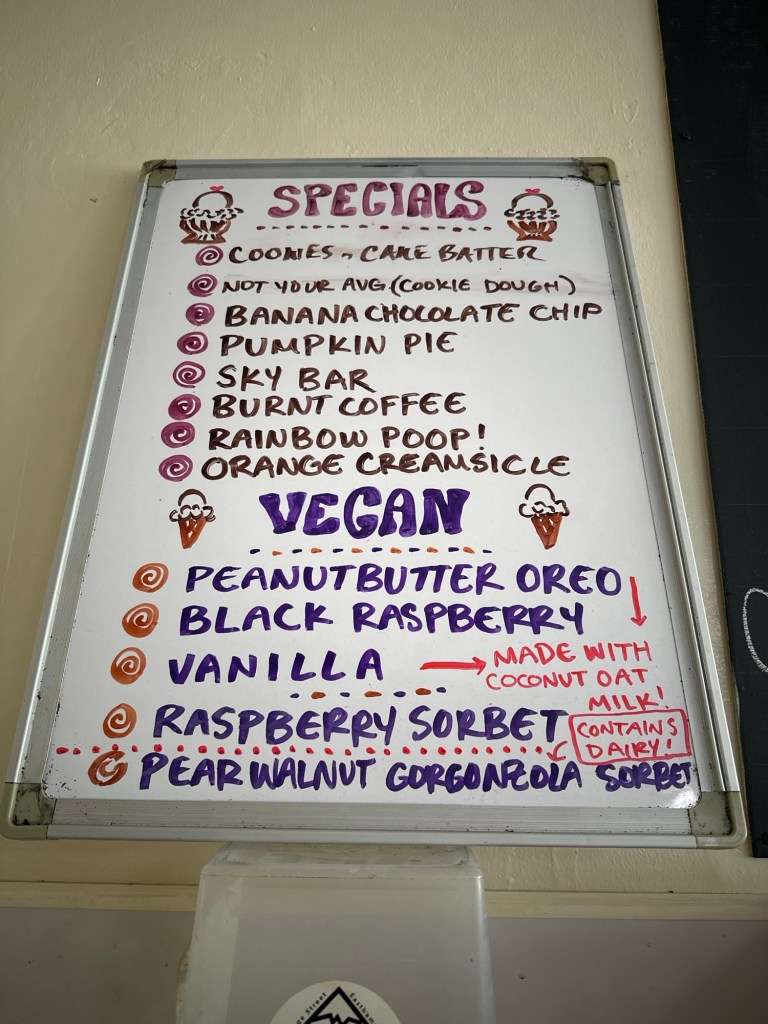 SPECIALS
COOKIES n CAKE BATTER
NOT YOUR AVG. (COOKIE DOUGH)
BANANA CHOCOLATE CHIP
PUMPKIN PIE
SKY BAR
BURNT COFFEE
RAINBOW POOP!
ORANGE CREAMSICLE
VEGAN
PEANUTBUTTER OREO
BLACK RASPBERRY
VANILLA → MADE WITH
COCONUT OAT
MILK!
RASPBERRY SORBET
CONTAINS
DAIRY!
PEAR WALNUT GORGONZOLA SORBET